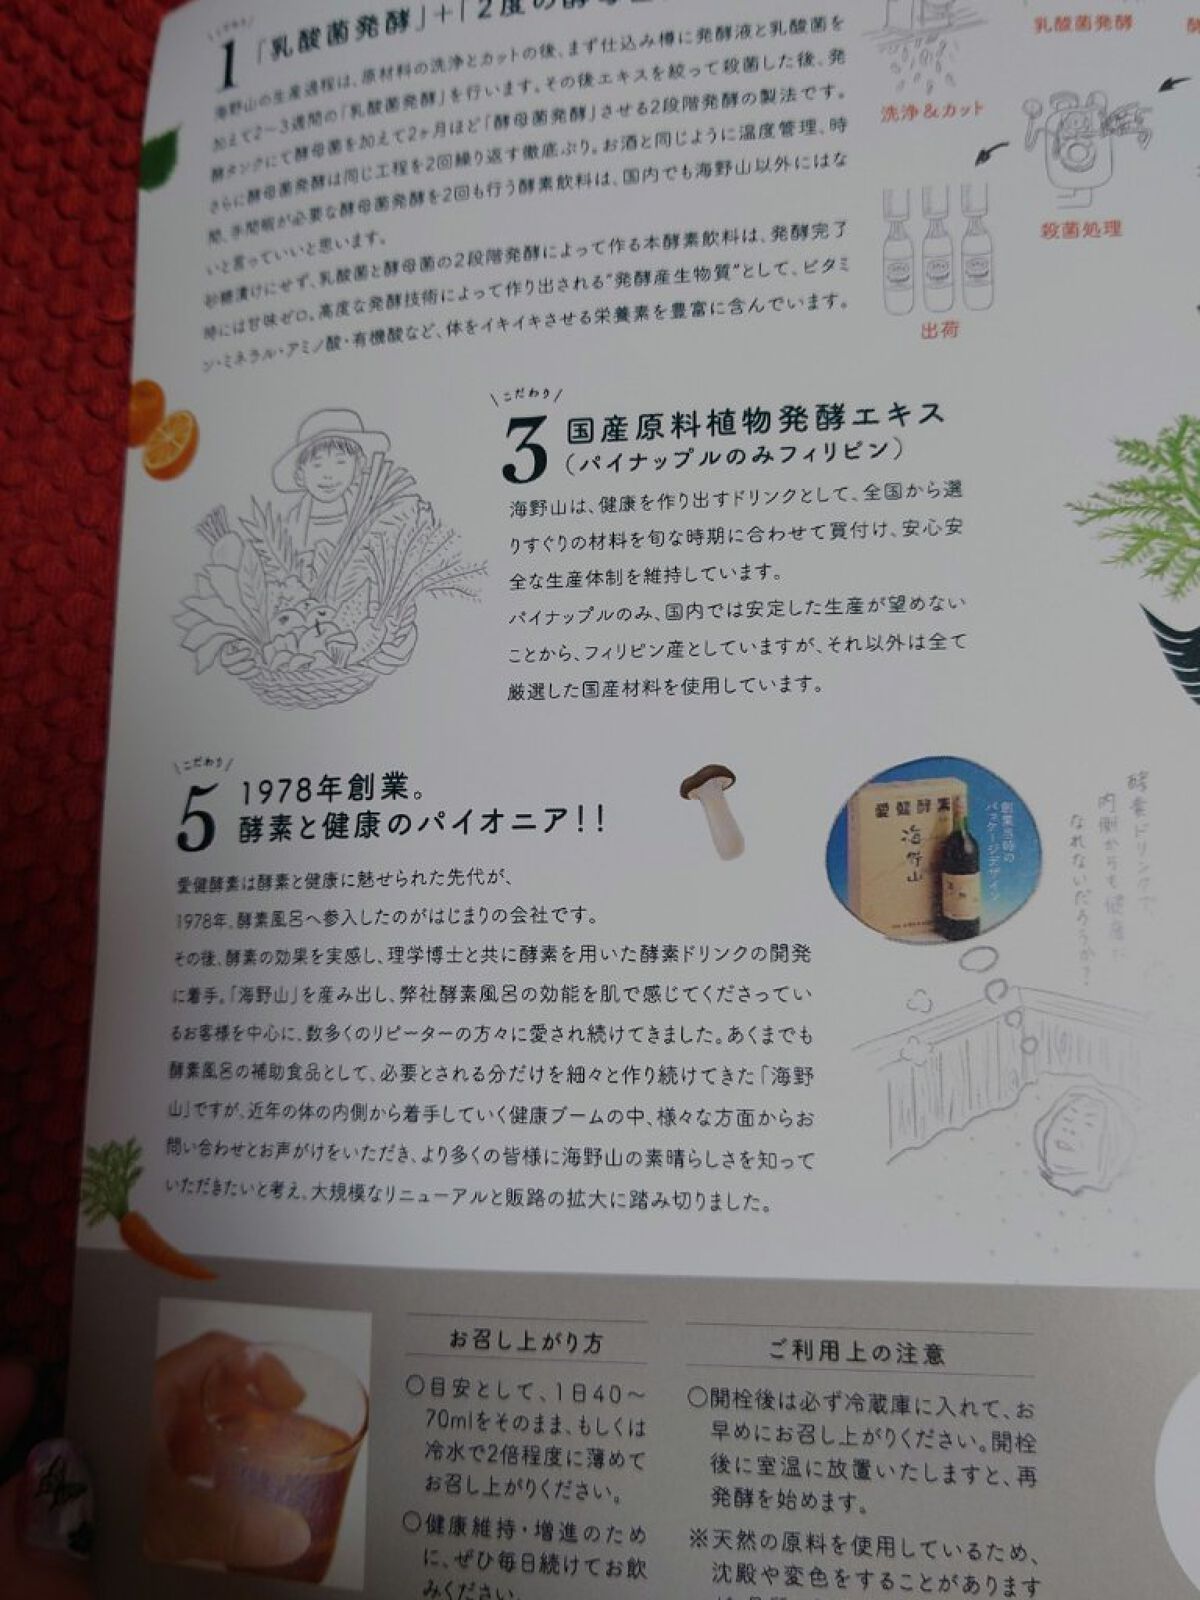 こだわり
1
「乳酸菌発酵」+「2度の酵母
海野山の生産過程は、原材料の洗浄とカットの後、まず仕込み樽に発酵液と乳酸菌を
加えて2〜3週間の「乳酸菌発酵」を行います。その後エキスを絞って殺菌した後、発
酵タンクにて酵母菌を加えて2ヶ月ほど「酵母菌発酵」させる2段階発酵の製法です。
さらに酵母菌発酵は同じ工程を2回繰り返す徹底ぶり。お酒と同じように温度管理、時
間、手間暇が必要な酵母菌発酵を2回も行う酵素飲料は、国内でも海野山以外にはな
いと言っていいと思います。
砂糖漬けにせず、乳酸菌と酵母菌の2段階発酵によって作る本酵素飲料は、発酵完了
時には甘味ゼロ。高度な発酵技術によって作り出される“発酵産生物質”として、ビタミ
ン・ミネラル・アミノ酸・有機酸など、体をイキイキさせる栄養素を豊富に含んでいます。
乳酸菌発酵
洗浄&カット
殺菌処理
出荷
こだわり
3
国産原料植物発酵エキス
(パイナップルのみフィリピン)
海野山は、健康を作り出すドリンクとして、全国から選
りすぐりの材料を旬な時期に合わせて買付け、安心安
全な生産体制を維持しています。
パイナップルのみ、国内では安定した生産が望めない
ことから、フィリピン産としていますが、それ以外は全て
厳選した国産材料を使用しています。
こだわり
5
1978年創業。
酵素と健康のパイオニア!!
愛健酵素は酵素と健康に魅せられた先代が、
1978年、酵素風呂へ参入したのがはじまりの会社です。
その後、酵素の効果を実感し、理学博士と共に酵素を用いた酵素ドリンクの開発
に着手。「海野山」を産み出し、弊社酵素風呂の効能を肌で感じてくださってい
るお客様を中心に、数多くのリピーターの方々に愛され続けてきました。あくまでも
酵素風呂の補助食品として、必要とされる分だけを細々と作り続けてきた「海野
山」ですが、近年の体の内側から着手していく健康ブームの中、様々な方面からお
問い合わせとお声がけをいただき、より多くの皆様に海野山の素晴らしさを知って
いただきたいと考え、大規模なリニューアルと販路の拡大に踏み切りました。
愛健酵素
海野山
創業当時の
パッケージデザイン
酵素ドリンクで
内側からも健康に
なれないだろうか?
お召し上がり方
○目安として、1日40〜
70mlをそのまま、もしくは
冷水で2倍程度に薄めて
お召し上がりください。
○健康維持・増進のため
に、ぜひ毎日続けてお飲
みください。
ご利用上の注意
○開栓後は必ず冷蔵庫に入れて、お
早めにお召し上がりください。開栓
後に室温に放置いたしますと、再
発酵を始めます。
※天然の原料を使用しているため、
沈殿や変色をすることがあります